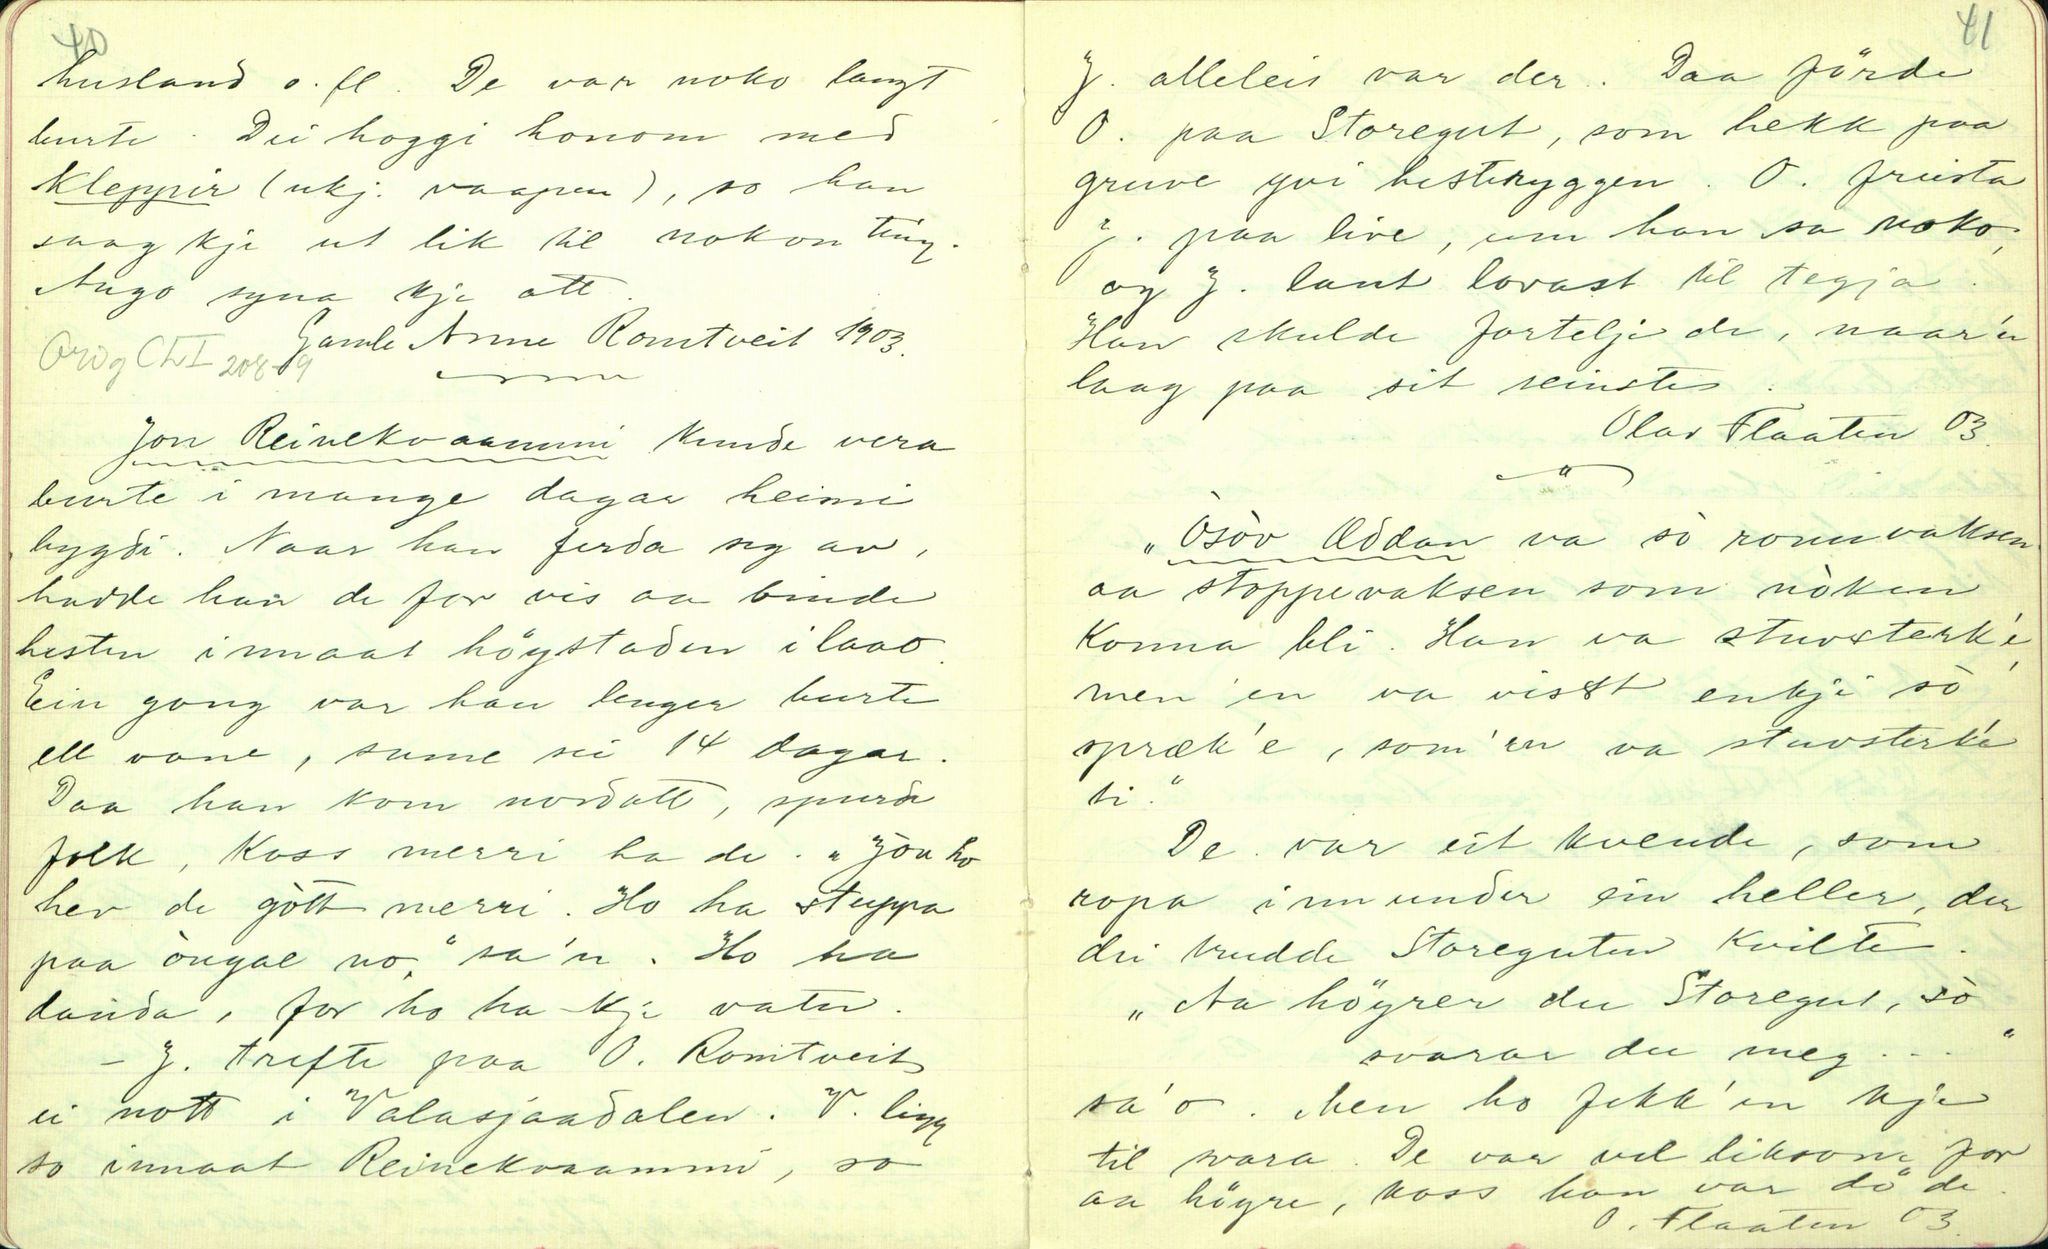 40
husland o. fl. De var noko langt
burte. Dei hoggi honom med
kleppir (ukj. vaapen), so han
saag kje ut lik til nokon ting.
Augo syna kje att.
Gamle Anne Romtveit 1903.
Orig CLI 208-9
Jon Reinekvaammi kunde vera
burte i mange dagar heimi
bygdi. Naar han ferda seg av,
hadde han de for vis aa binde
hesten innaat höystaden i laao.
Ein gong var han lenger burte
ell vane, sume sei 14 dagar.
Daa han kom nordatt, spurde
folk, koss merri ha de. "Jöu ho
hev de gòtt merri. Ho ha stuppa
paa òngal no," sa'n. Ho ha
dauda, for ho ha kje vatn.
- J. trefte paa O. Romtveit
ei nott i Valasjaadalen. V. ligg
so innaat Reinekvaammi, so
41
J. alleleis var der. Daa förde
O. paa Storegut, som hekk paa
gruve yvi hesteryggen. O. freista
J. paa live, um han sa noko,
og J. laut lovast til tegja.
Han skulde fortelje de, naar'n
laag paa sit seinste.
Olav Flaaten 03.
"
"Òsòv Òddan va sò romvaksen
aa stoppevaksen som nòken
konna bli. Han va stuvsterk'e,
men'en va visst enkji sò
spræk'e, som'en va stuvsterk'e
ti."
De var eit kvende, som
ropa innunder ein heller, der
dei trudde Storeguten kvilte.
"Aa höyrer du Storegut, sò
svarar du meg ... "
sa'o. Men ho fekk'en kje
til svara. De var vel liksom for
aa höyre, koss han var dö de.
O. Flaaten 03.